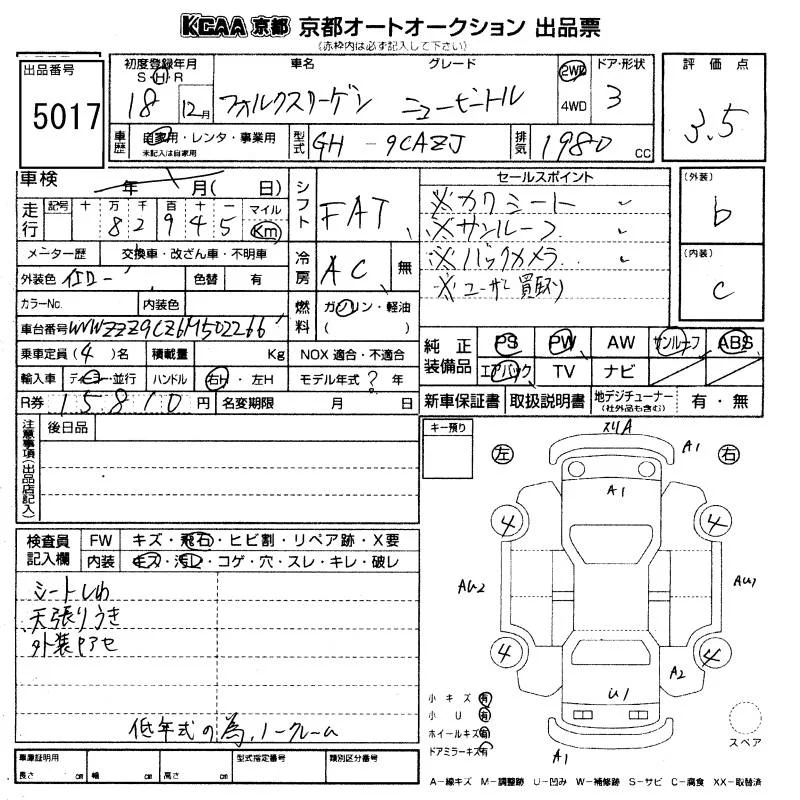 KCAA 京都 京都オートオークション 出品票
(赤枠内は必ず記入して下さい)
出品番号
5017
初度登録年月 車名 グレード ドア・形状
S・H・R
18 12月 フォルクスワーゲン ニュービートル 2WD 4WD 3
評価点
3.5
車歴 自家用・レンタ・事業用
未記入は自家用
型式 GH - 9CAZJ 排気 1980 cc
車検 年 月( 日)
走行 記号 十 万 千 百 十 一 マイル
82945 Km
メーター歴 交換車・改ざん車・不明車
外装色 イエロー 色替 有
カラーNo. 内装色
車台番号 WVWZZZ9CZ6M502266
乗車定員(4)名 積載量 Kg
輸入車 ディーラー・並行 ハンドル 右H・左H
R券 15810円 名変期限 月 日
シフト FAT
冷房 AC 無
燃料 ガソリン・軽油
( )
NOX 適合・不適合
モデル年式 ? 年
セールスポイント
※カワシート
※サンルーフ
※バックカメラ
※ユーザー買取り
(外装)
b
(内装)
C
純正装備品 PS PW AW サンルーフ ABS
エアバック TV ナビ
新車保証書 取扱説明書 地デジチューナー (社外品も含む) 有・無
注意事項(出品店記入)
後日品
キー預り
スリA
左 右
A1
A1
4 4
AU2 AU1
4 4
A2
U1
A1
小キズ 有
小U 有
ホイールキズ 有
ドアミラーキズ 有
スペア
検査員記入欄 FW キズ・飛石・ヒビ割・リペア跡・X要
内装 キズ・汚レ・コゲ・穴・スレ・キレ・破レ
シートしわ
天張りうき
外装アセ
低年式の為、ノークレーム
車庫証明用
長さ cm 幅 cm 高さ cm
型式指定番号 類別区分番号
A-線キズ M-調整跡 U-凹み W-補修跡 S-サビ C-腐食 XX-取替済